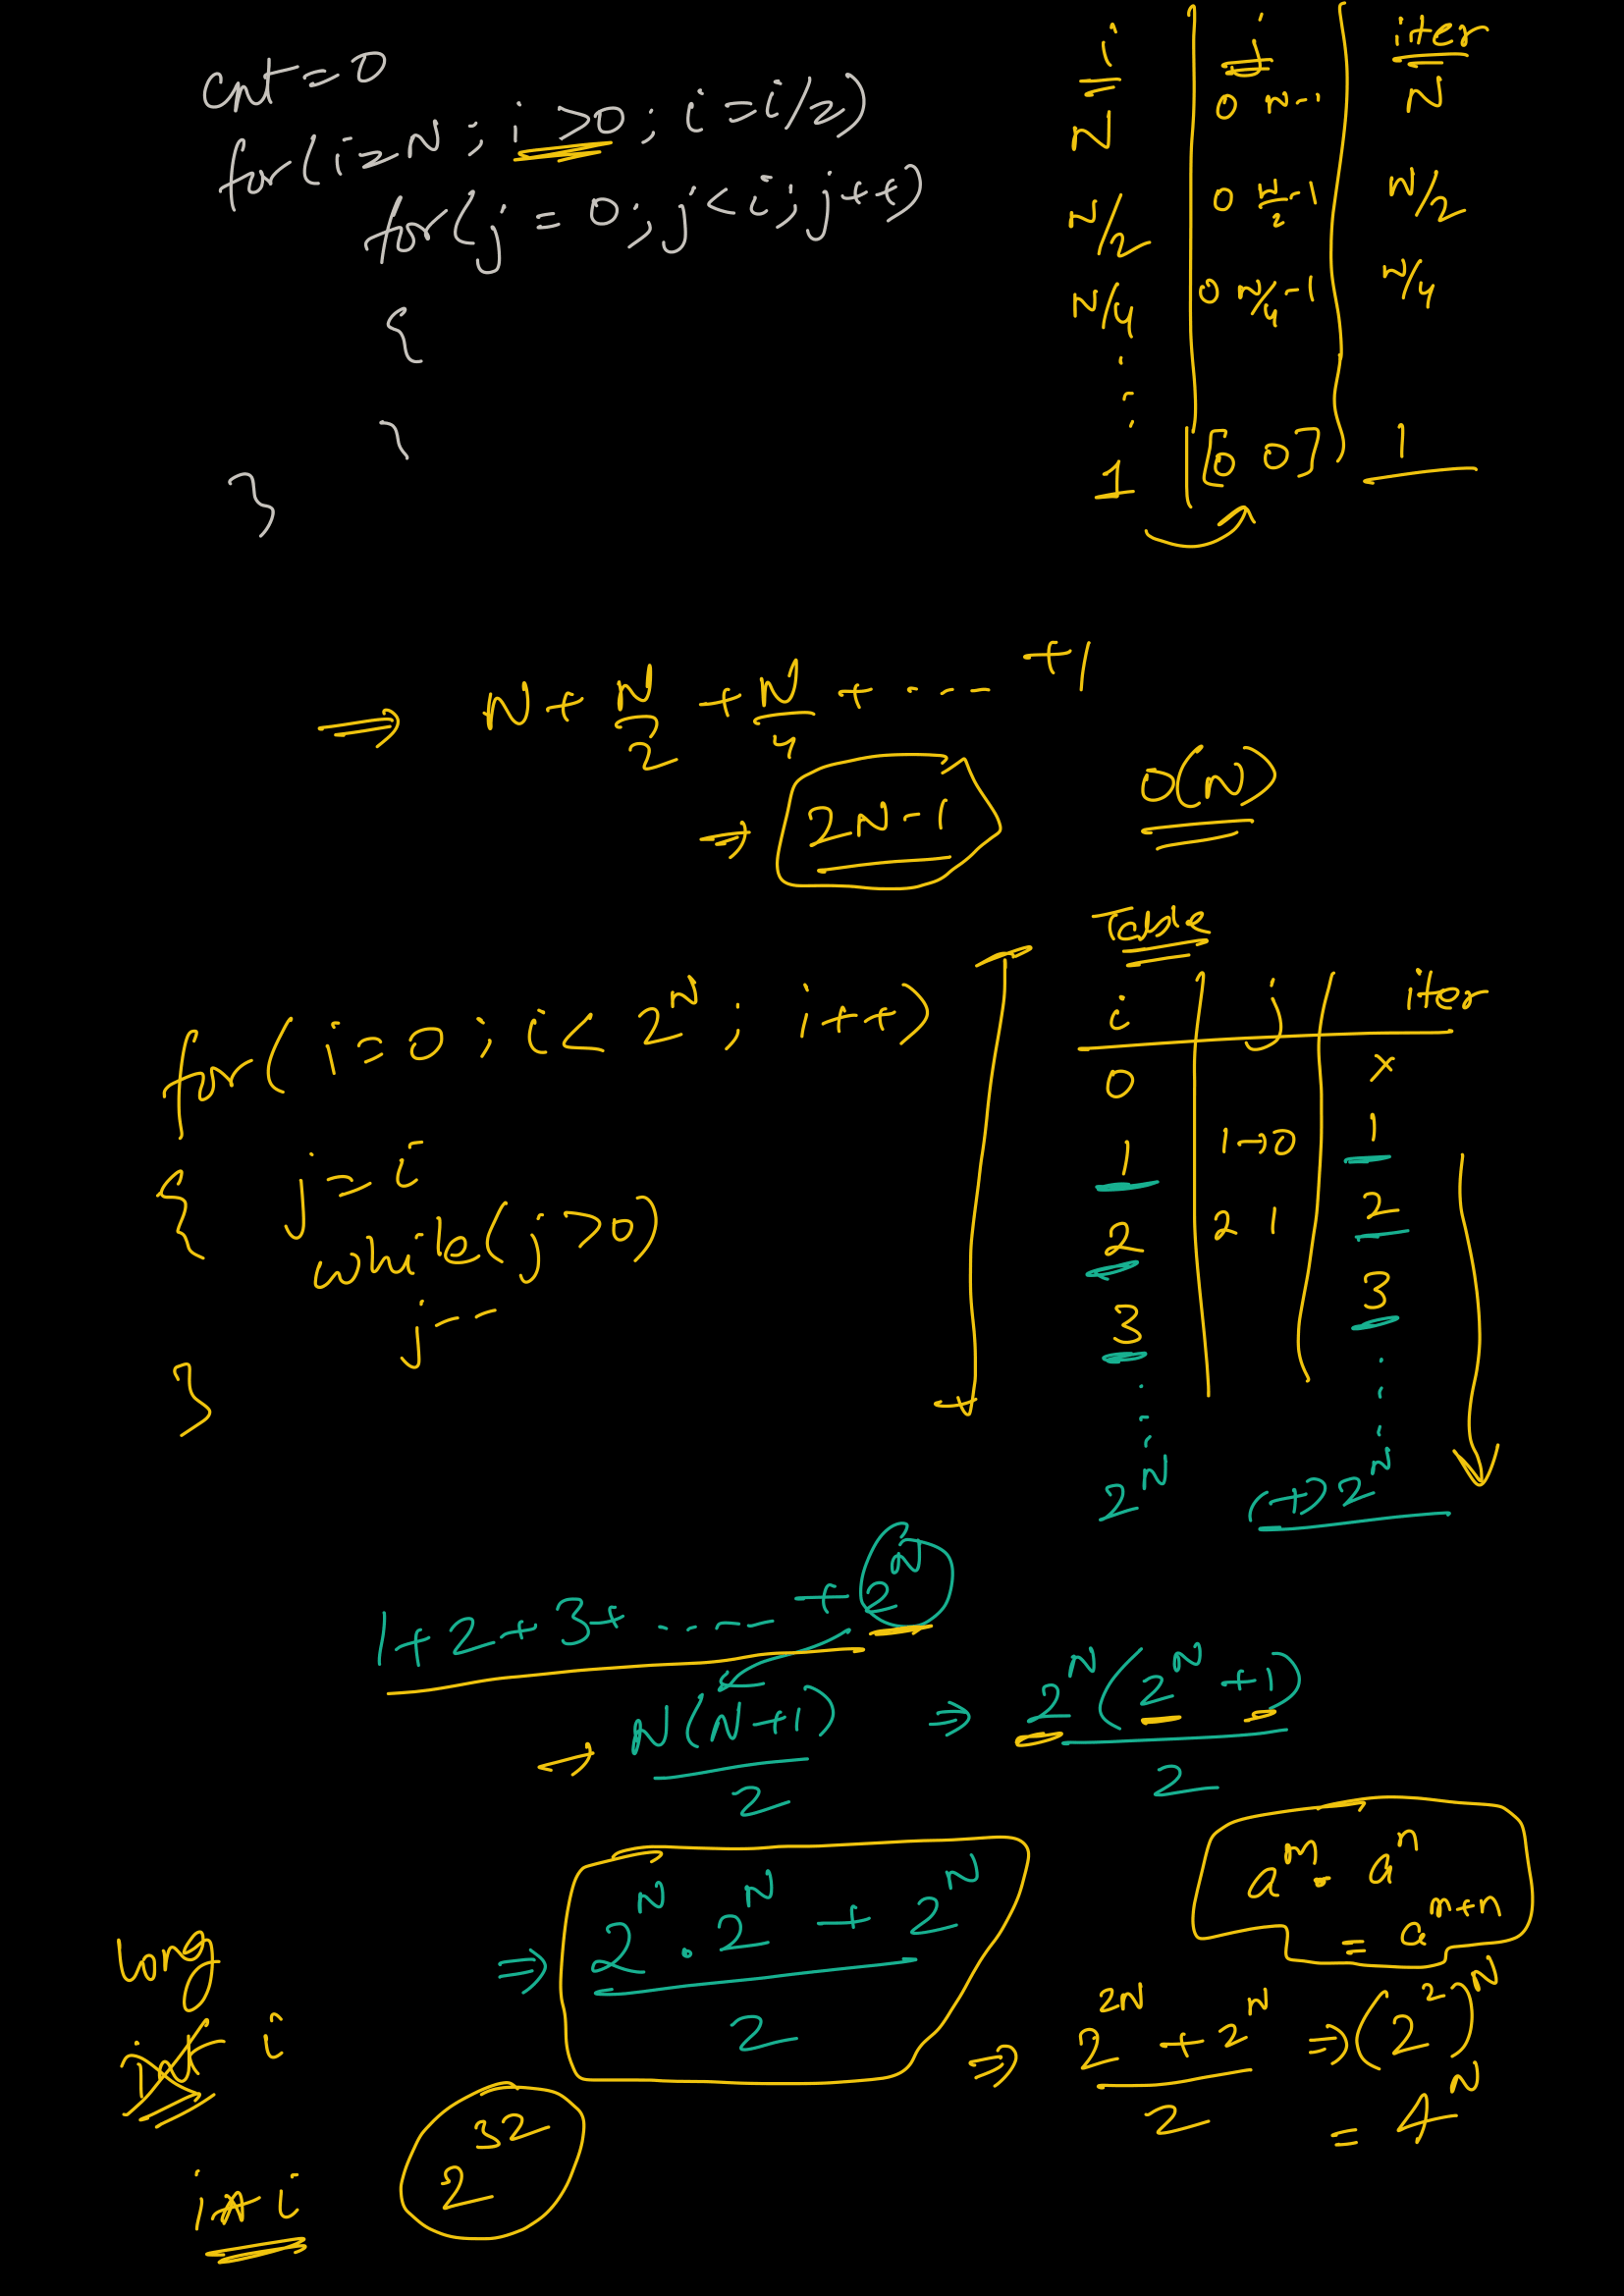 cnt=0
for(i=N; i>0; i=i/2)
for(j=0; j<i; j++)
{
}
}
i | j | iter
N | 0 N-1 | N
N/2 | 0 N/2-1 | N/2
N/4 | 0 N/4-1 | N/4
⋮
1 | [0 0] | 1
⇒ N + N/2 + N/4 + ..... +1
⇒ 2N-1
O(N)
for( i=0; i< 2^N; i++)
{ j=i
while(j>0)
j--
}
Table
i | j | iter
0 | | x
1 | 1→0 | 1
2 | 2 1 | 2
3 | | 3
⋮
2^N (+) 2^N
1+2+3+ ..... +2^N
→ N(N+1)/2 ⇒ 2^N(2^N+1)/2
⇒ (2^N . 2^N + 2^N)/2
a^m . a^n
= a^(m+n)
⇒ (2^2N + 2^N)/2 ⇒ (2^2)^N
= 4^N
long
int i
i*i
2^32